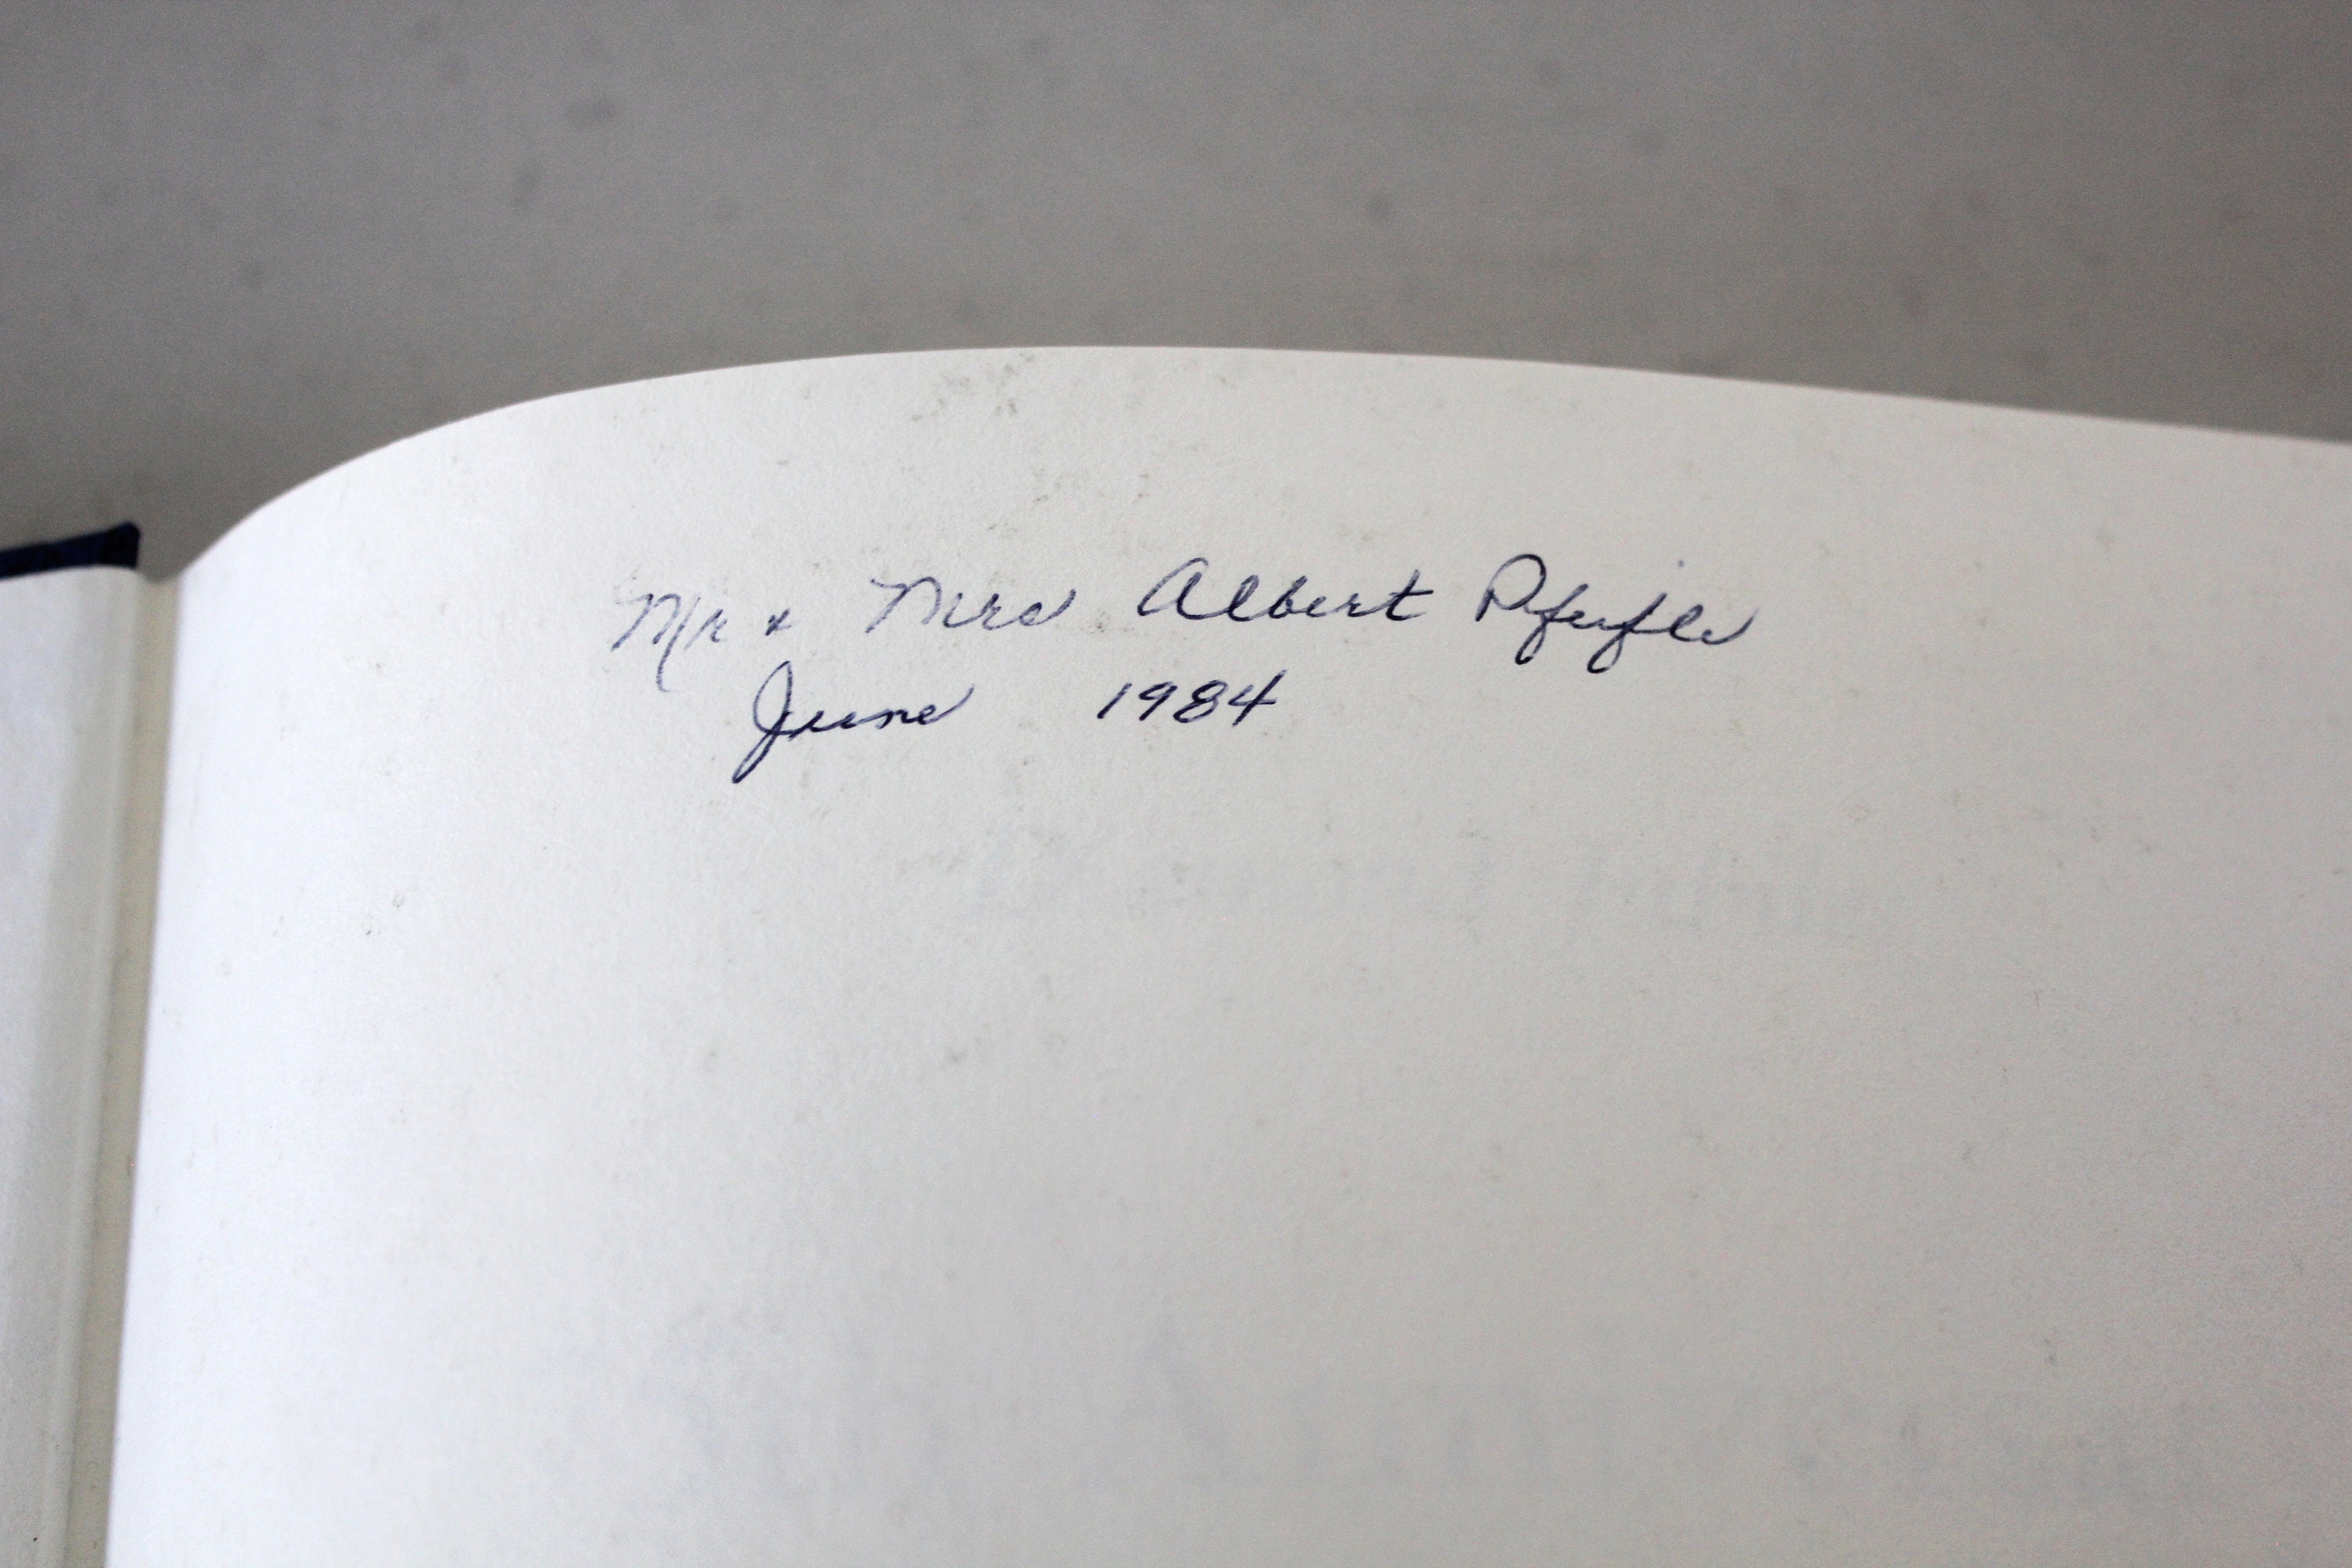 Mr & Mrs Albert Pfeifle
June 1984